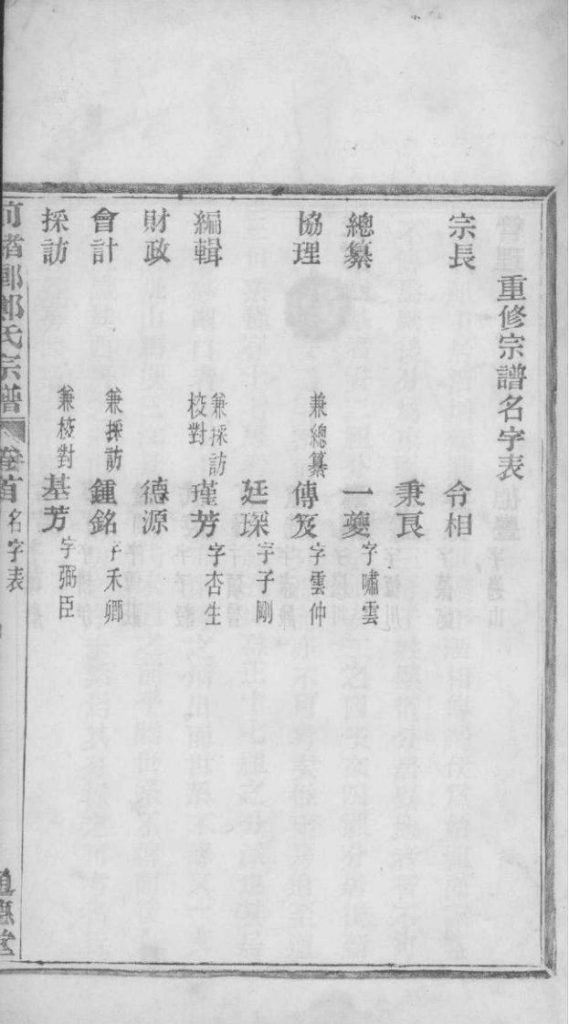 重修宗譜名字表
宗長 令相
秉良
總纂 一夔 字嘯雲
協理 兼總纂 傳笈 字雲仲
廷琛 字子剛
編輯 兼採訪校對 瑾芳 字杏生
財政 德源
會計 兼採訪 鍾銘 字禾卿
採訪 兼校對 基芳 字弼臣
鄭氏宗譜 卷首 名字表